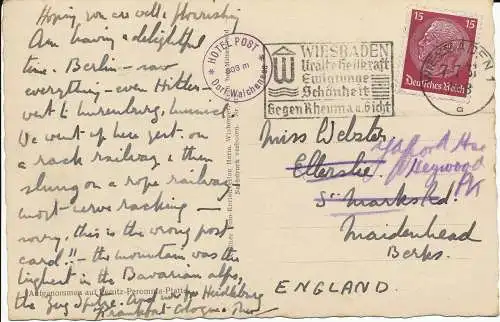 Hoping you are well & flourishing
Am having a delightful
time. Berlin – saw
everything – even Hitler –
went to Luxemburg, Munich
We went up here yest. on
a rack railway & then
slung on a rope railway
most nerve racking –
sorry, this is the wrong post
card!! – the mountain was the
highest in the Bavarian alps,
the Zug Spitze. And now for Heidelburg
Frankfort – Cologne &
Aufgenommen auf Perutz-Peromnia-Platte
HOTEL POST
803 m
Dorf Walchensee
WIESBADEN
Uralte Heilkraft
Ewigjunge
Schönheit
Gegen Rheuma u. Gicht
WIESBADEN 1
15 15
Deutsches Reich
Miss Webster
Ellerslie
St Marks Rd.
Maidenhead
Berks.
ENGLAND.
Heywood
Pk